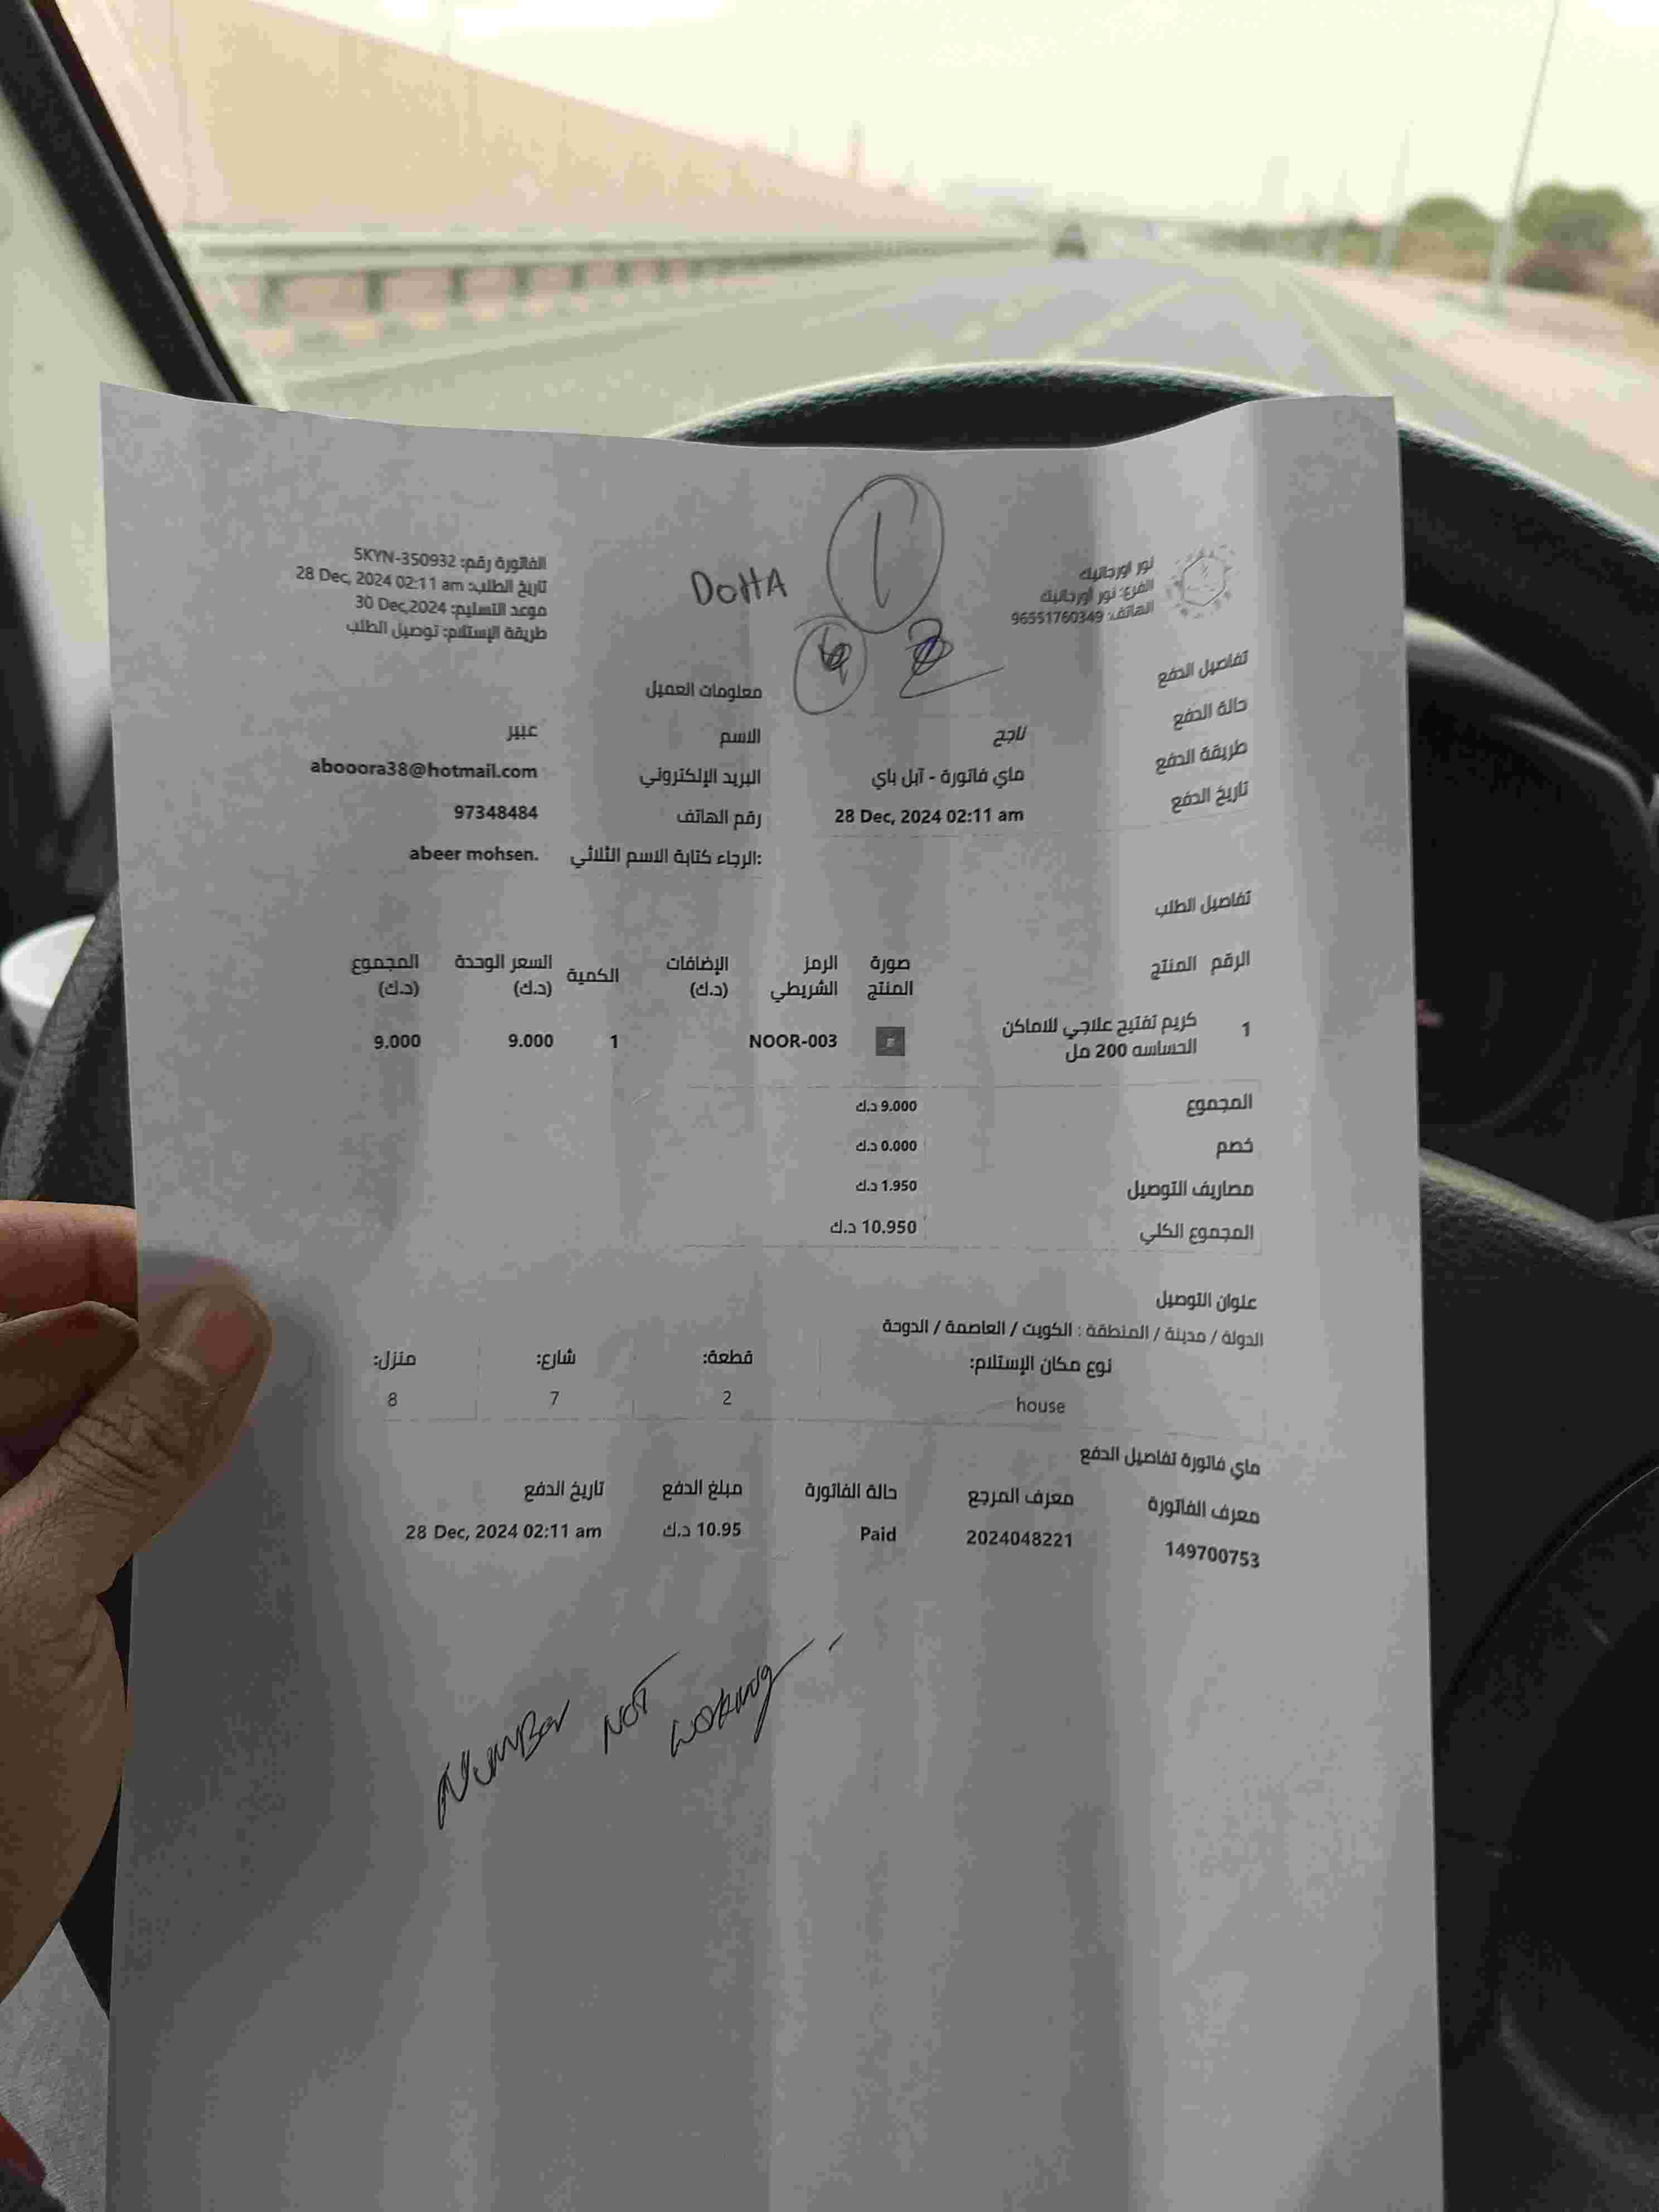 DOHA
1
نور اورجانيك
الفرع: نور أورجانيك
الهاتف: 96551760349
الفاتورة رقم: 5KYN-350932
تاريخ الطلب: 28 Dec, 2024 02:11 am
موعد التسليم: 30 Dec,2024
طريقة الإستلام: توصيل الطلب
تفاصيل الدفع
حالة الدفع ناجح
طريقة الدفع ماي فاتورة - آبل باي
تاريخ الدفع 28 Dec, 2024 02:11 am
معلومات العميل
الاسم عبير
البريد الإلكتروني abooora38@hotmail.com
رقم الهاتف 97348484
الرجاء كتابة الاسم الثلاثي: abeer mohsen.
تفاصيل الطلب
الرقم المنتج صورة المنتج الرمز الشريطي الإضافات (د.ك) الكمية السعر الوحدة (د.ك) المجموع (د.ك)
1 كريم تفتيح علاجي للاماكن NOOR-003 1 9.000 9.000
الحساسه 200 مل
المجموع 9.000 د.ك
خصم 0.000 د.ك
مصاريف التوصيل 1.950 د.ك
المجموع الكلي 10.950 د.ك
عنوان التوصيل
الدولة / مدينة / المنطقة : الكويت / العاصمة / الدوحة
نوع مكان الإستلام: قطعة: شارع: منزل:
house 2 7 8
ماي فاتورة تفاصيل الدفع
معرف الفاتورة معرف المرجع حالة الفاتورة مبلغ الدفع تاريخ الدفع
149700753 2024048221 Paid 10.95 د.ك 28 Dec, 2024 02:11 am
Number NOT working